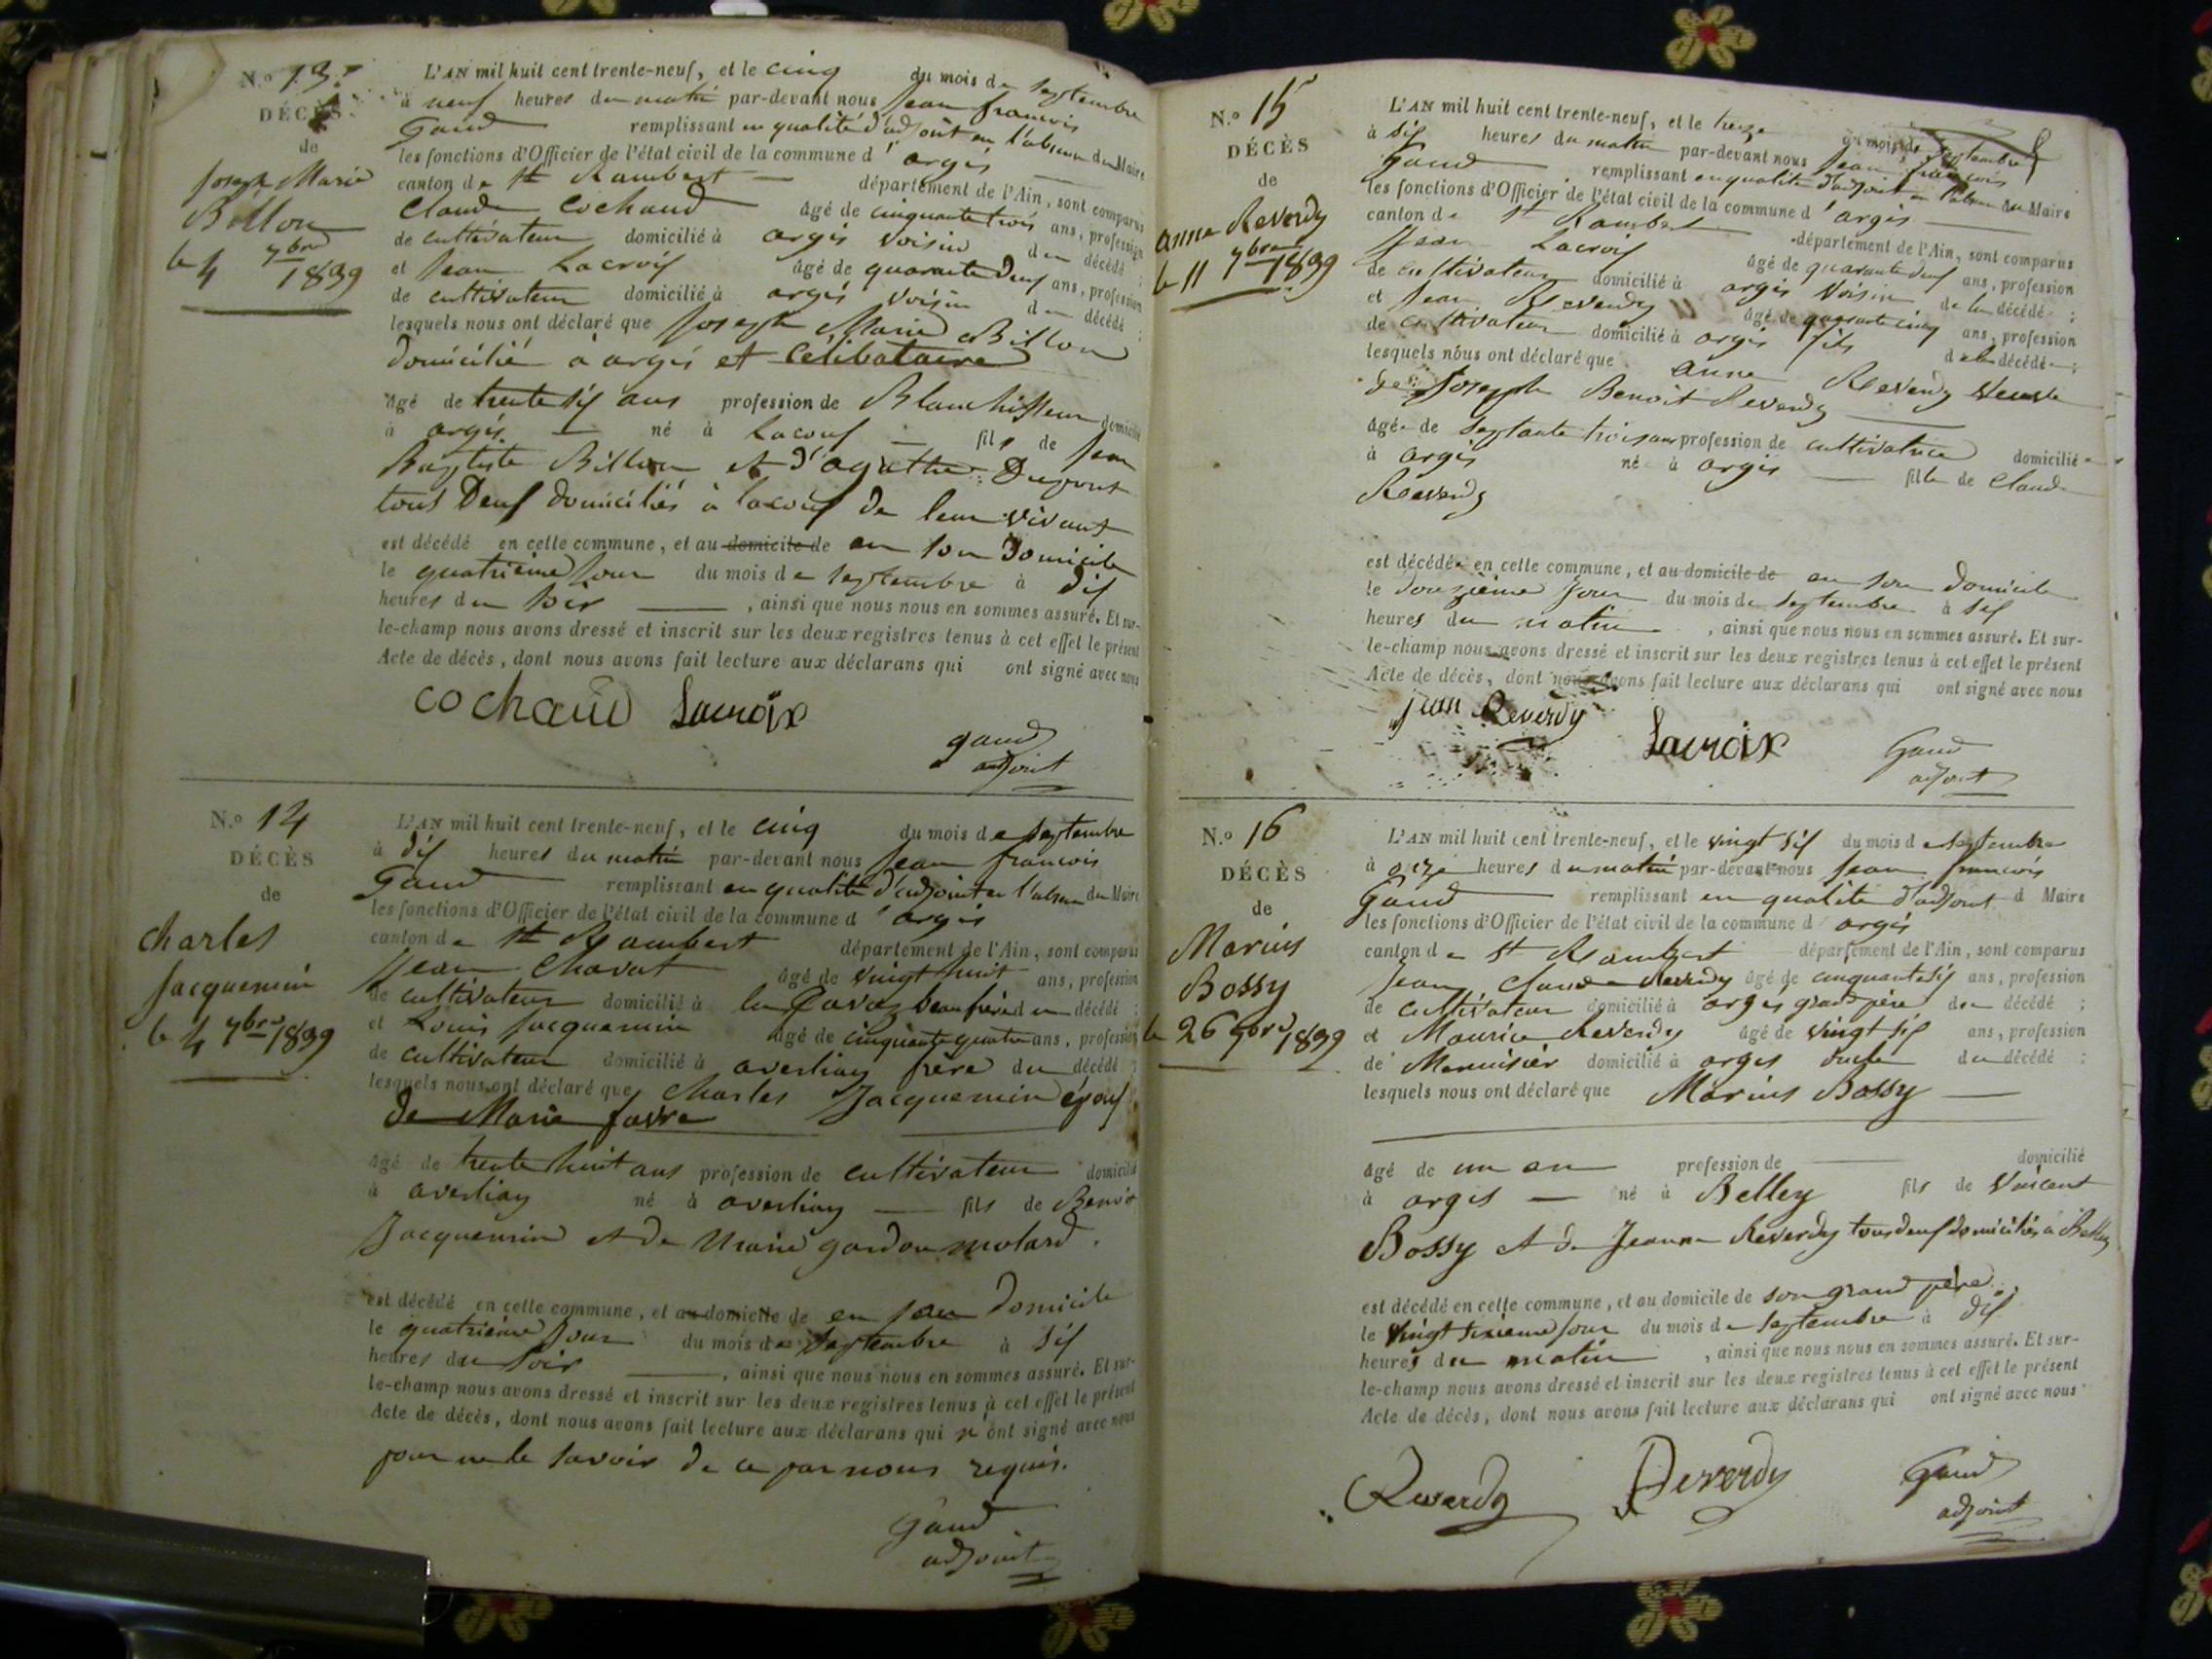 N.o 13.
DÉCÈS
de
Joseph Marie
Billon
le 4 7bre 1839
L'AN mil huit cent trente-neuf, et le cinq du mois de septembre
à neuf heures du matin par-devant nous Jean francois
Gaud remplissant en qualité d'adjoint en l'absence du Maire
les fonctions d'Officier de l'état civil de la commune d'argis
canton de st Rambert département de l'Ain, sont comparus
Claude Cochaud âgé de cinquante trois ans, profession
de cultivateur domicilié à argis voisin du décédé ;
et Jean Lacroix âgé de quarante deux ans, profession
de cultivateur domicilié à argis voisin du décédé ;
lesquels nous ont déclaré que Joseph Marie Billon
domicilié à argis et Célibataire
âgé de trente six ans profession de Blanchisseur domicilié
à argis né à Lacoux fils de Jean
Baptiste Billon et d'agathe Dupont
tous Deux domiciliés à lacoux de leur vivant
est décédé en cette commune, et au domicile de en son Domicile
le quatrième jour du mois de septembre à dix
heures du soir , ainsi que nous nous en sommes assuré. Et sur-
le-champ nous avons dressé et inscrit sur les deux registres tenus à cet effet le présent
Acte de décès, dont nous avons fait lecture aux déclarans qui ont signé avec nous
cochaud Lacroix
gaud
adjoint
N.o 14
DÉCÈS
de
Charles
Jacquemin
le 4 7bre 1839
L'AN mil huit cent trente-neuf, et le cinq du mois de septembre
à dix heures du matin par-devant nous Jean francois
Gaud remplissant en qualité d'adjoint en l'absence du Maire
les fonctions d'Officier de l'état civil de la commune d'argis
canton de st Rambert département de l'Ain, sont comparus
Jean Chavat âgé de vingt huit ans, profession
de cultivateur domicilié à beaufrère du décédé ;
et Louis Jacquemin âgé de cinquante quatre ans, profession
de cultivateur domicilié à averliay frère du décédé ;
lesquels nous ont déclaré que Charles Jacquemin époux
de Marie favre
âgé de trente huit ans profession de cultivateur domicilié
à averliay né à averliay fils de Benoit
Jacquemin et de Marie gardon molard.
est décédé en cette commune, et au domicile de en son Domicile
le quatrième jour du mois de septembre à six
heures du soir , ainsi que nous nous en sommes assuré. Et sur-
le-champ nous avons dressé et inscrit sur les deux registres tenus à cet effet le présent
Acte de décès, dont nous avons fait lecture aux déclarans qui n'ont signé avec nous
pour ne le savoir de ce par nous requis.
Gaud
adjoint
N.o 15
DÉCÈS
de
anne Reverdy
le 11 7bre 1839
L'AN mil huit cent trente-neuf, et le treize du mois de septembre
à six heures du matin par-devant nous Jean francois
Gaud remplissant en qualité d'adjoint en l'absence du Maire
les fonctions d'Officier de l'état civil de la commune d'argis
canton de st Rambert département de l'Ain, sont comparus
Jean Lacroix âgé de quarante deux ans, profession
de cultivateur domicilié à argis voisin de la décédée ;
et Jean Reverdy âgé de quarante cinq ans, profession
de cultivateur domicilié à argis fils de la décédée ;
lesquels nous ont déclaré que anne Reverdy veuve
de Joseph Benoit Reverdy
âgée de septante trois ans profession de cultivatrice domiciliée
à argis née à argis fille de Claude
Reverdy
est décédée en cette commune, et au domicile de en son domicile
le douzième jour du mois de septembre à six
heures du matin , ainsi que nous nous en sommes assuré. Et sur-
le-champ nous avons dressé et inscrit sur les deux registres tenus à cet effet le présent
Acte de décès, dont nous avons fait lecture aux déclarans qui ont signé avec nous
jean Reverdy Lacroix Gaud
adjoint
N.o 16
DÉCÈS
de
Marius
Bossy
le 26 7bre 1839
L'AN mil huit cent trente-neuf, et le vingt six du mois de septembre
à onze heures du matin par-devant nous Jean francois
Gaud remplissant en qualité d'adjoint d Maire
les fonctions d'Officier de l'état civil de la commune d'argis
canton de st Rambert département de l'Ain, sont comparus
Jean Claude Reverdy âgé de cinquante six ans, profession
de cultivateur domicilié à argis grand père du décédé ;
et Maurice Reverdy âgé de vingt six ans, profession
de Menuisier domicilié à argis oncle du décédé ;
lesquels nous ont déclaré que Marius Bossy
âgé de un an profession de domicilié
à argis né à Belley fils de Vincent
Bossy et de Jeanne Reverdy tous deux domiciliés à Belley
est décédé en cette commune, et au domicile de son grand père
le vingt sixieme jour du mois de septembre à dix
heures du matin , ainsi que nous nous en sommes assuré. Et sur-
le-champ nous avons dressé et inscrit sur les deux registres tenus à cet effet le présent
Acte de décès, dont nous avons fait lecture aux déclarans qui ont signé avec nous
Reverdy Reverdy Gaud
adjoint